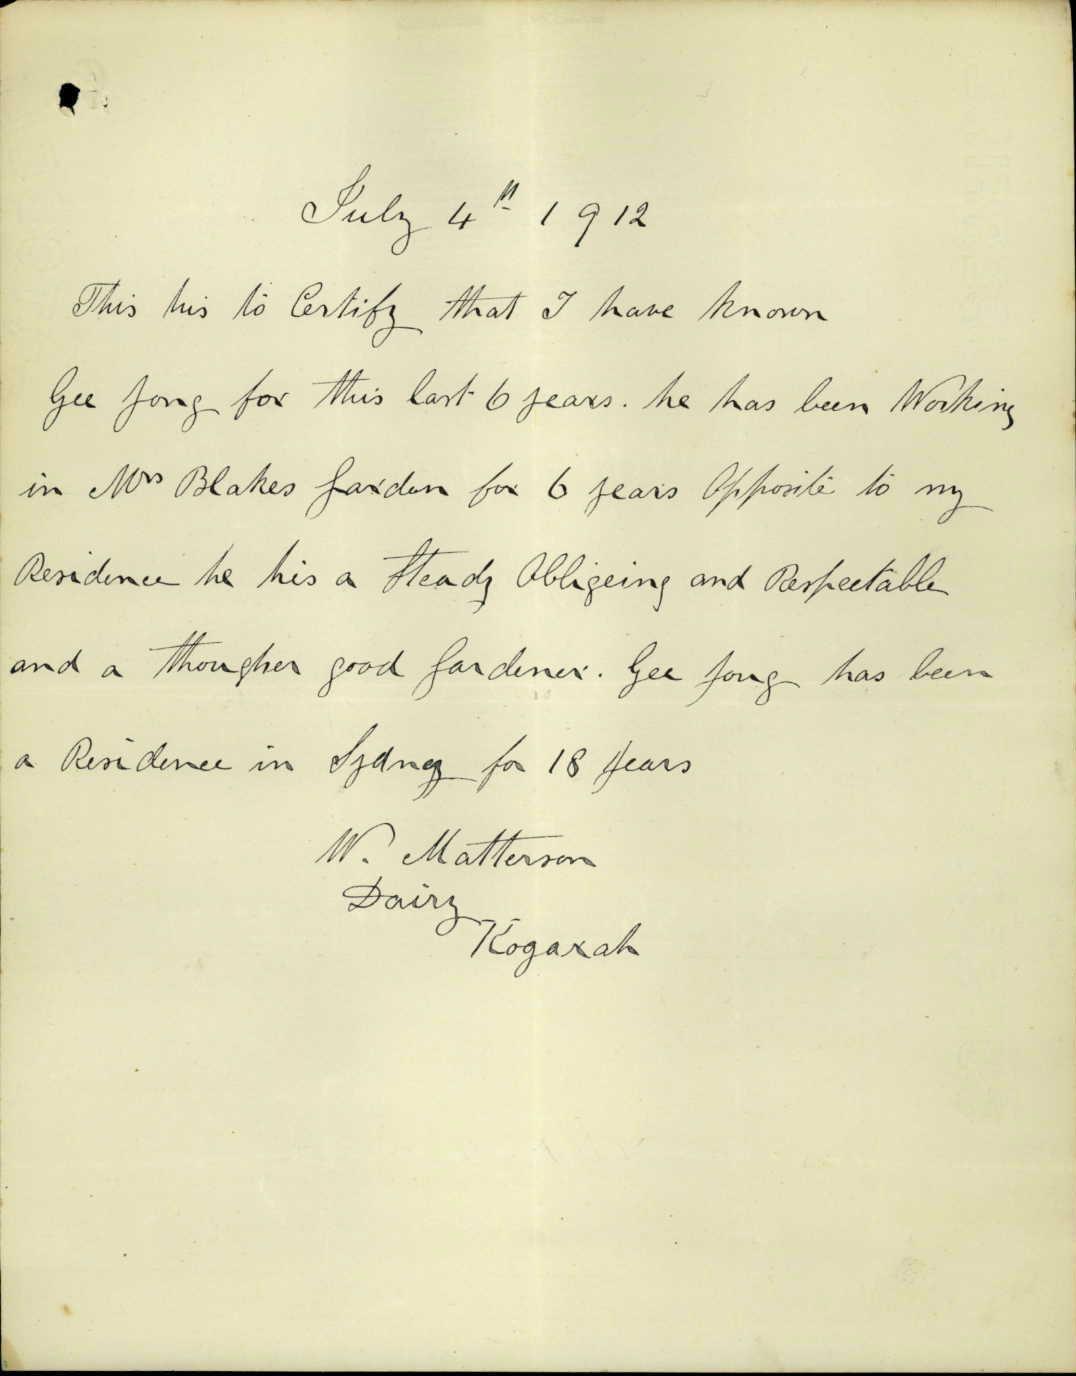 July 4th 1912
This his to Certify that I have known
Gee Jong for this last 6 years. he has been Working
in Mrs Blakes garden for 6 years Opposite to my
Residence he his a Steady Obligeing and Respectable
and a thougher good gardener. Gee Jong has been
a Residence in Sydney for 18 years
W. Matterson
Dairy
Kogarah